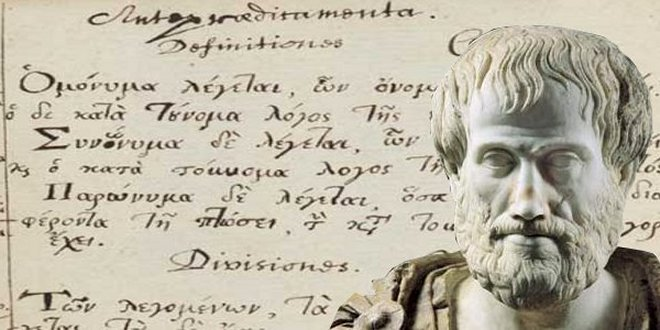 Antepraedicamenta.
Definitiones
Ὁμόνυμα λέγεται, ὧν ὄνομ
ὁ δὲ κατὰ τοὔνομα λόγος τῆς
Συνώνυμα δὲ λέγεται, ὧν
ὁ κατὰ τοὔνομα λόγος τῆς
Παρώνυμα δὲ λέγεται, ὅσα
φέροντα τῇ πτώσει, τοῦ
ἔχει.
Divisiones.
Τῶν λεγομένων, τὰ
λέγεται